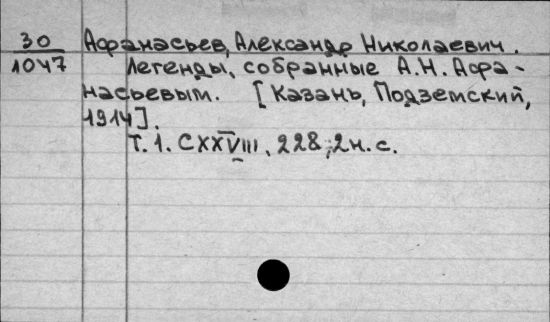 30 Афанасьев, Александр Николаевич.
1047 Легенды, собранные А.Н. Афа-
насьевым. [Казань, Подземский,
1914].
Т. 1. CXXVIII, 228, 2 н. с.